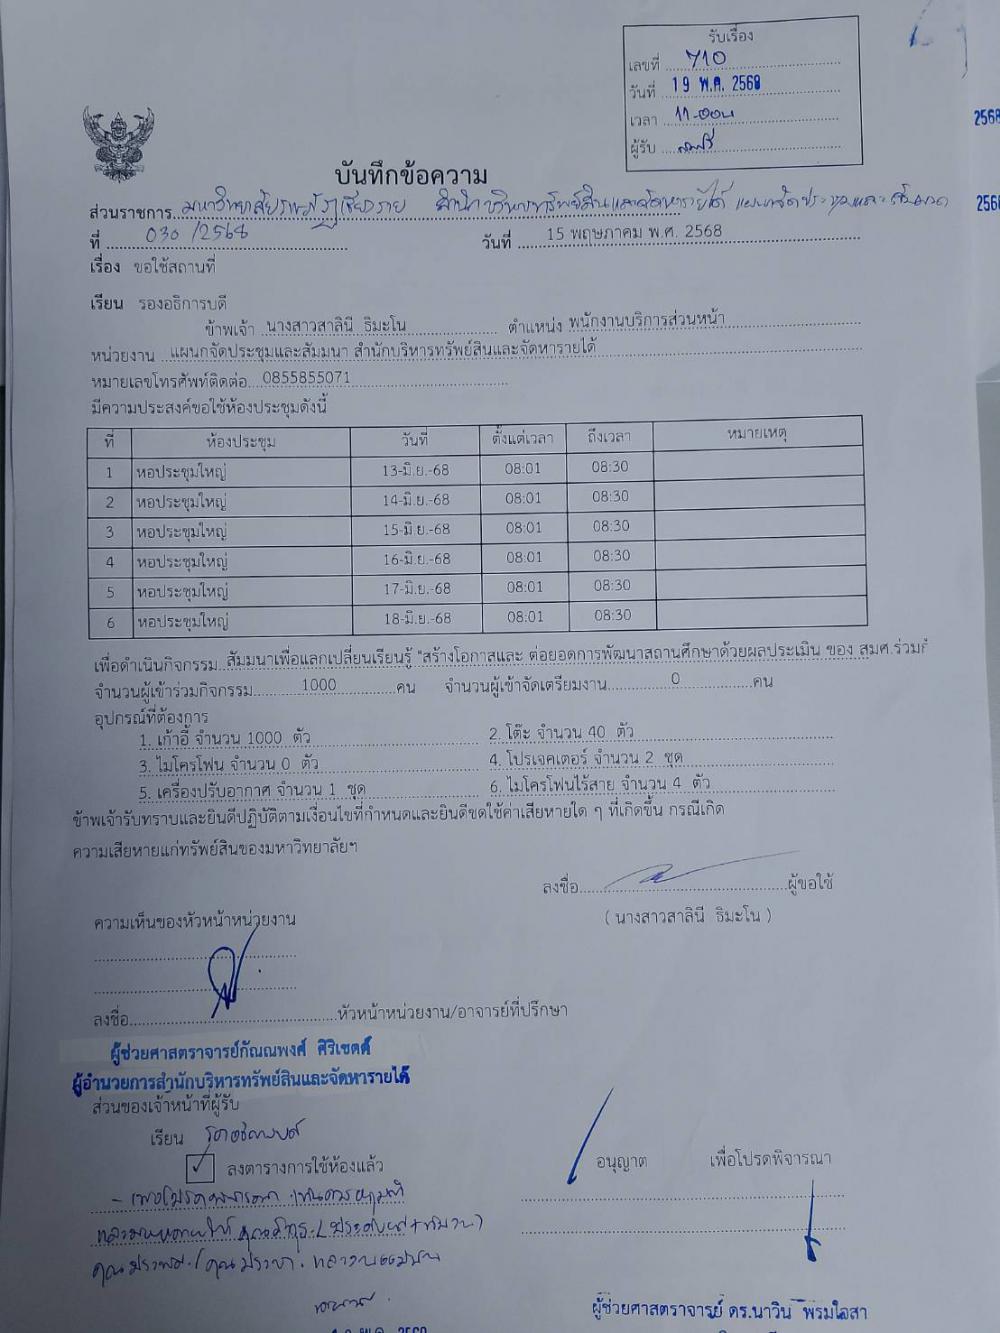 รับเรื่อง
เลขที่ 710
วันที่ 19 พ.ค. 2568
เวลา 11.00น
ผู้รับ
2568
บันทึกข้อความ
ส่วนราชการ มหาวิทยาลัยราชภัฏเชียงราย สำนักบริหารทรัพย์สินและจัดหารายได้ แผนกจัดประชุมและสัมมนา
256
ที่ 030/2568 วันที่ 15 พฤษภาคม พ.ศ. 2568
เรื่อง ขอใช้สถานที่
เรียน รองอธิการบดี
ข้าพเจ้า นางสาวสาลินี ธิมะโน ตำแหน่ง พนักงานบริการส่วนหน้า
หน่วยงาน แผนกจัดประชุมและสัมมนา สำนักบริหารทรัพย์สินและจัดหารายได้
หมายเลขโทรศัพท์ติดต่อ 0855855071
มีความประสงค์ขอใช้ห้องประชุมดังนี้
ที่ ห้องประชุม วันที่ ตั้งแต่เวลา ถึงเวลา หมายเหตุ
1 หอประชุมใหญ่ 13-มิ.ย.-68 08:01 08:30
2 หอประชุมใหญ่ 14-มิ.ย.-68 08:01 08:30
3 หอประชุมใหญ่ 15-มิ.ย.-68 08:01 08:30
4 หอประชุมใหญ่ 16-มิ.ย.-68 08:01 08:30
5 หอประชุมใหญ่ 17-มิ.ย.-68 08:01 08:30
6 หอประชุมใหญ่ 18-มิ.ย.-68 08:01 08:30
เพื่อดำเนินกิจกรรม สัมมนาเพื่อแลกเปลี่ยนเรียนรู้ "สร้างโอกาสและ ต่อยอดการพัฒนาสถานศึกษาด้วยผลประเมิน ของ สมศ.ร่วมกั
จำนวนผู้เข้าร่วมกิจกรรม 1000 คน จำนวนผู้เข้าจัดเตรียมงาน 0 คน
อุปกรณ์ที่ต้องการ
1. เก้าอี้ จำนวน 1000 ตัว 2. โต๊ะ จำนวน 40 ตัว
3. ไมโครโฟน จำนวน 0 ตัว 4. โปรเจคเตอร์ จำนวน 2 ชุด
5. เครื่องปรับอากาศ จำนวน 1 ชุด 6. ไมโครโฟนไร้สาย จำนวน 4 ตัว
ข้าพเจ้ารับทราบและยินดีปฏิบัติตามเงื่อนไขที่กำหนดและยินดีชดใช้ค่าเสียหายใด ๆ ที่เกิดขึ้น กรณีเกิด
ความเสียหายแก่ทรัพย์สินของมหาวิทยาลัยฯ
ลงชื่อ ผู้ขอใช้
( นางสาวสาลินี ธิมะโน )
ความเห็นของหัวหน้าหน่วยงาน
ลงชื่อ หัวหน้าหน่วยงาน/อาจารย์ที่ปรึกษา
ผู้ช่วยศาสตราจารย์กัณณพงศ์ ศิริเขตต์
ผู้อำนวยการสำนักบริหารทรัพย์สินและจัดหารายได้
ส่วนของเจ้าหน้าที่ผู้รับ
เรียน รองอธิการบดี
ลงตารางการใช้ห้องแล้ว
อนุญาต เพื่อโปรดพิจารณา
- เพื่อโปรดพิจารณา
ผู้ช่วยศาสตราจารย์ ดร.นาวิน พรมใจสา